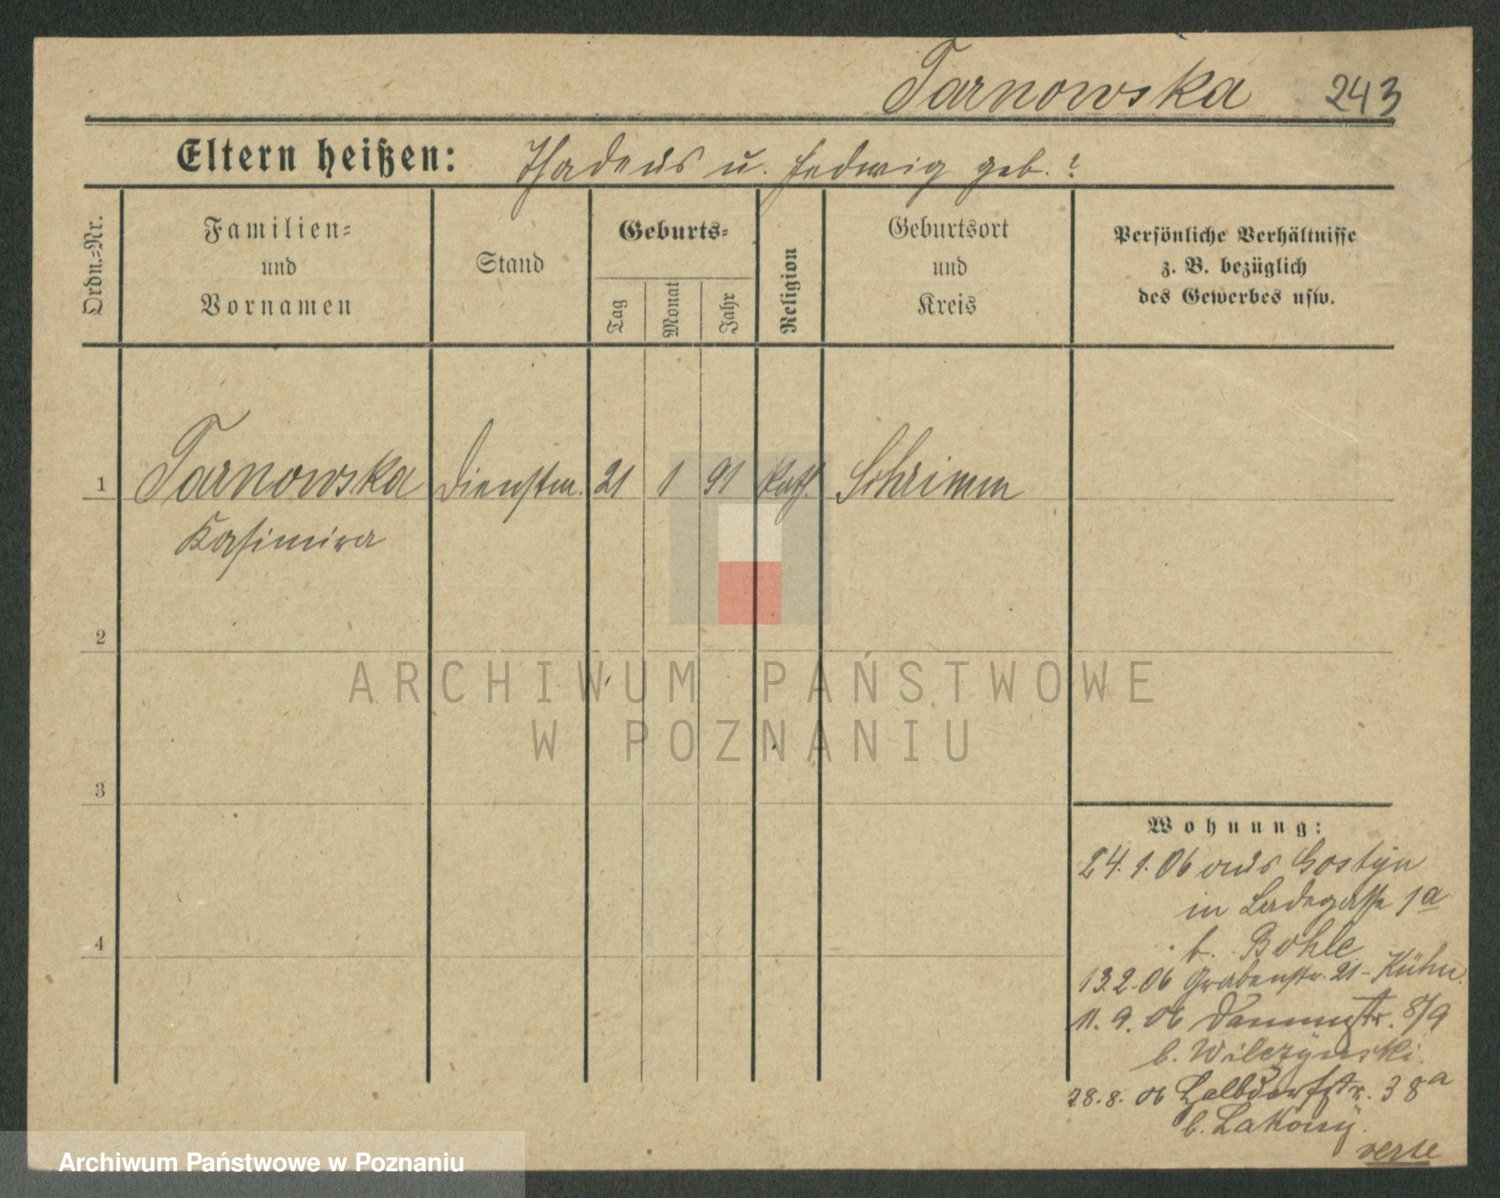 Tarnowska 243
Eltern heißen: Thadeus u. Hedwig geb. ?
Ordn.-Nr.
Familien-
und
Vornamen
Stand
Geburts-
Tag
Monat
Jahr
Religion
Geburtsort
und
Kreis
Persönliche Verhältnisse
z. B. bezüglich
des Gewerbes usw.
1 Tarnowska Dienstm. 21 1 91 kath. Schrimm
Kasimira
2
3
4
ARCHIWUM PAŃSTWOWE
W POZNANIU
Wohnung:
24.1.06 aus Gostyn
in Ladegasse 1a
b. Bohle
13.2.06 Grabenstr. 21 - Kühn
11.9.06 Dammstr. 8/9
b. Wilczynski
28.8.06 Halbdorfstr. 38a
b.
verte
Archiwum Państwowe w Poznaniu